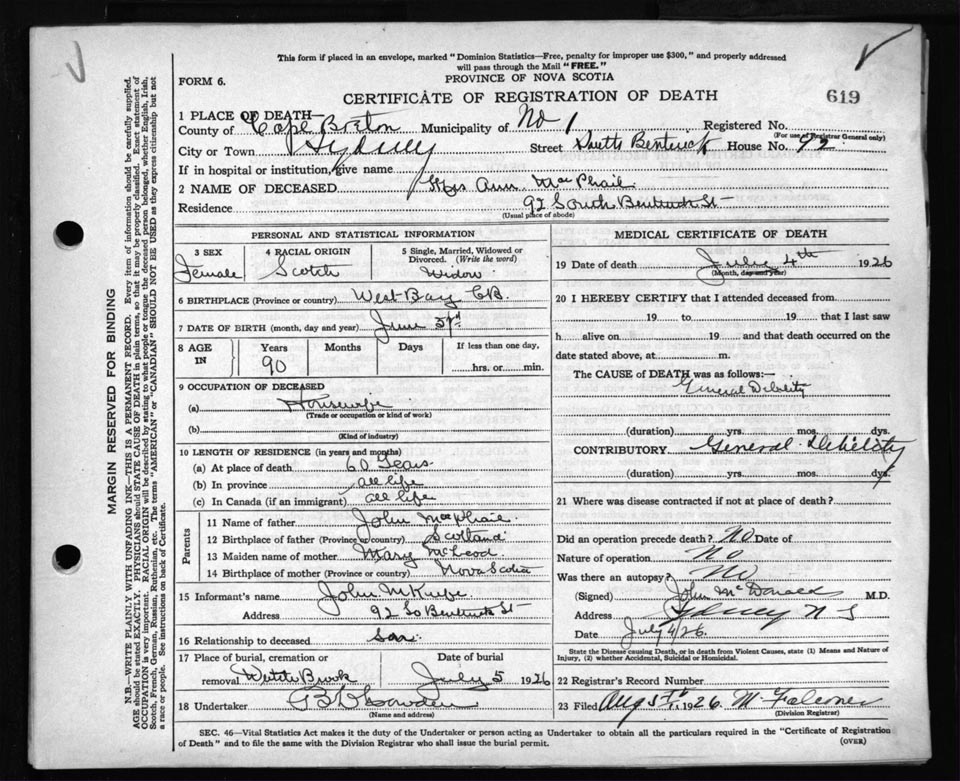 This form if placed in an envelope, marked "Dominion Statistics—Free, penalty for improper use $300," and properly addressed
will pass through the Mail "FREE."
FORM 6.
PROVINCE OF NOVA SCOTIA
CERTIFICATE OF REGISTRATION OF DEATH
619
1 PLACE OF DEATH—
County of Cape Breton Municipality of No 1 Registered No.
(For use of Registrar General only)
City or Town Sydney Street South Bentinck House No. 92
If in hospital or institution, give name
2 NAME OF DECEASED Mrs Ann MacPhail
Residence 92 South Bentinck St
(Usual place of abode)
PERSONAL AND STATISTICAL INFORMATION
3 SEX
Female
4 RACIAL ORIGIN
Scotch
5 Single, Married, Widowed or
Divorced. (Write the word)
Widow
6 BIRTHPLACE (Province or country) West Bay CB.
7 DATE OF BIRTH (month, day and year) June
8 AGE
IN
Years
90
Months
Days
If less than one day,
hrs. or min.
9 OCCUPATION OF DECEASED
(a) Housewife
(Trade or occupation or kind of work)
(b)
(Kind of industry)
10 LENGTH OF RESIDENCE (in years and months)
(a) At place of death 60 Years
(b) In province all life
(c) In Canada (if an immigrant) all life
Parents
11 Name of father John MacPhail
12 Birthplace of father (Province or country) Scotland
13 Maiden name of mother Mary McLeod
14 Birthplace of mother (Province or country) Nova Scotia
15 Informant's name John
Address 92 So Bentinck St
16 Relationship to deceased son
17 Place of burial, cremation or
removal Brook
Date of burial
July 5 1926
18 Undertaker
(Name and address)
MEDICAL CERTIFICATE OF DEATH
19 Date of death July 4th 1926
(Month, day and year)
20 I HEREBY CERTIFY that I attended deceased from
19 to 19 that I last saw
h alive on 19 and that death occurred on the
date stated above, at m.
The CAUSE of DEATH was as follows:—
General Debility
(duration) yrs. mos. dys.
CONTRIBUTORY General Debility
(duration) yrs. mos. dys.
21 Where was disease contracted if not at place of death?
Did an operation precede death? No Date of
Nature of operation No
Was there an autopsy? No
(Signed) John McDonald M.D.
Address Sydney N S
Date July 4 26.
State the Disease causing Death, or in death from Violent Causes, state (1) Means and Nature of
Injury, (2) whether Accidental, Suicidal or Homicidal.
22 Registrar's Record Number
23 Filed Aug 5th, 1926. McFalconer
(Division Registrar)
SEC. 46—Vital Statistics Act makes it the duty of the Undertaker or person acting as Undertaker to obtain all the particulars required in the "Certificate of Registration
of Death" and to file the same with the Division Registrar who shall issue the burial permit.
(OVER)
MARGIN RESERVED FOR BINDING
N.B.—WRITE PLAINLY WITH UNFADING INK—THIS IS A PERMANENT RECORD. Every item of information should be carefully supplied.
AGE should be stated EXACTLY. PHYSICIANS should STATE CAUSE OF DEATH in plain terms, so that it may be properly classified. Exact statement of
OCCUPATION is very important. RACIAL ORIGIN will be described by stating to what people or tongue the deceased person belonged, whether English, Irish,
Scotch, French, German, Russian, Ruthenian, etc. The terms "AMERICAN" or "CANADIAN" SHOULD NOT BE USED as they express citizenship but not
a race or people. See instructions on back of Certificate.